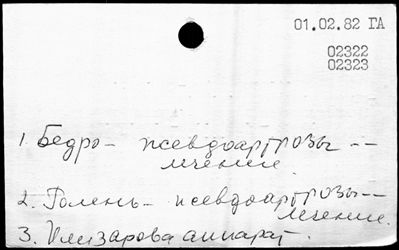 01.02.82 ГА
02322
02323
1. Бедро - псевдоартрозы --
лечение.
2. Голень - псевдоартрозы --
лечение.
3. Илизарова аппарат.